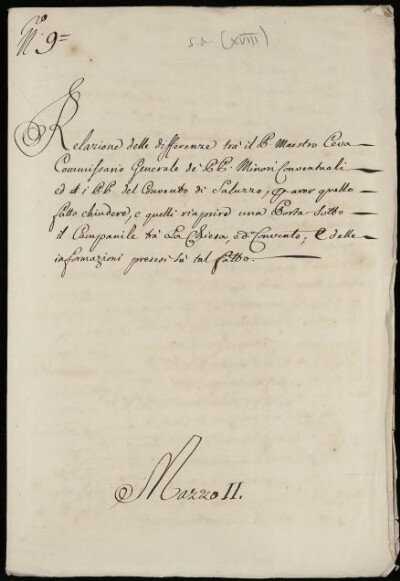 N.º 9=
s.d. (XVIII)
Relazione delle differenze trà il P. Maestro Ceva
Commissario Generale de' PP. Minori Conventuali
ed i PP. del Convento di Saluzzo, p aver quello
fatto chiudere, e quelli riaprire una Porta sotto
il Campanile trà La Chiesa, ed Convento, E delle
informazioni presesi sù tal fatto.
Mazzo II.